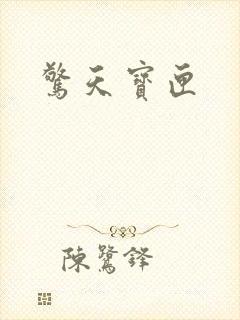 驚天寶匣
陳鷺鋒